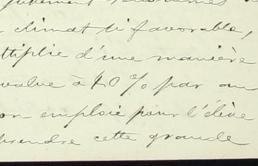 climat si favorable,
ultiplie d'une manière
value à 40 % par an
on emploie pour l'élève
prendre cette grande